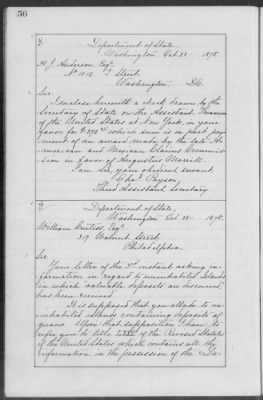 56
Department of State,
Washington, Oct. 22 - 1878.
H. J. Anderson Esqr.
No. 1012 I Street
Washington, D.C.
Sir:
I enclose herewith a check drawn by the
Secretary of State on the Assistant Treasurer
of the United States at New York, in your
favor for $ which sum is in part pay-
ment of an award made by the late A-
merican and Mexican Claims Commis-
sion in favor of Augustus Morrill.
I am, Sir, your obedient servant,
Chas. Payson,
Third Assistant Secretary.
Department of State,
Washington Oct. - 1878.
William Curtiss, Esqr.
319 Walnut Street
Philadelphia.
Sir:
Your letter of the 3rd instant asking in-
formation in regard to uninhabited Islands
in which valuable deposits are discovered,
has been received.
It is supposed that you allude to un-
inhabited islands containing deposits of
guano. Upon that supposition I have to
refer you to title of the Revised Statutes
of the United States which contains all the
information in the possession of the De-